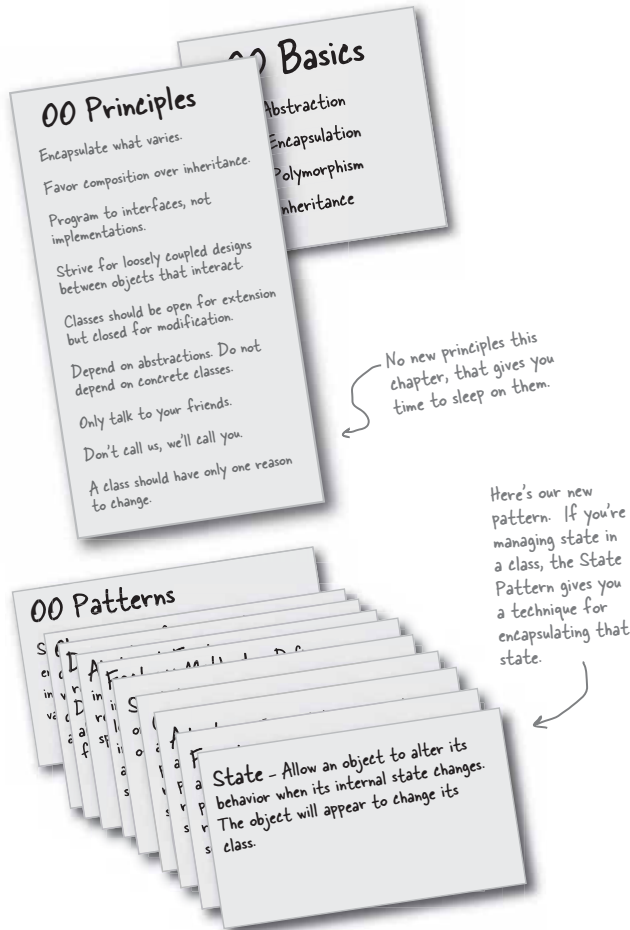 OO Basics
Abstraction
Encapsulation
Polymorphism
Inheritance
OO Principles
Encapsulate what varies.
Favor composition over inheritance.
Program to interfaces, not
implementations.
Strive for loosely coupled designs
between objects that interact.
Classes should be open for extension
but closed for modification.
Depend on abstractions. Do not
depend on concrete classes.
Only talk to your friends.
Don't call us, we'll call you.
A class should have only one reason
to change.
No new principles this
chapter, that gives you
time to sleep on them.
Here's our new
pattern. If you're
managing state in
a class, the State
Pattern gives you
a technique for
encapsulating that
state.
OO Patterns
State - Allow an object to alter its
behavior when its internal state changes.
The object will appear to change its
class.